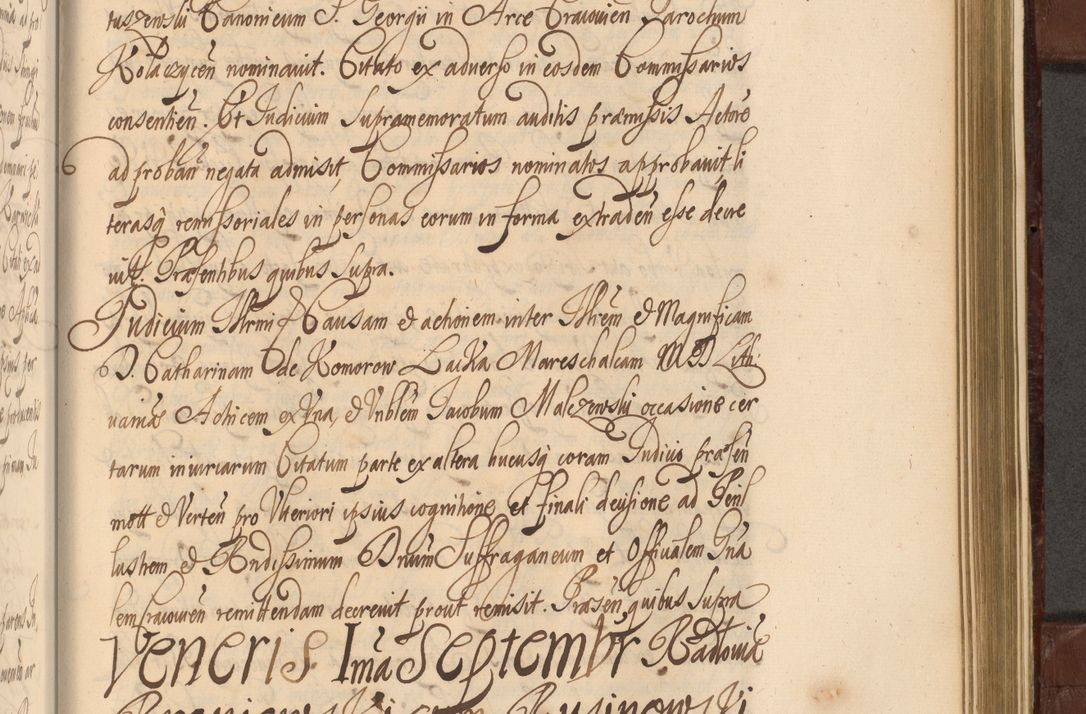 tuszewski Canonicum S. Georgii in Arce Cracovien Parochum
Kołaczycen nominavit. Citato ex adverso in eosdem Commissarios
consentien. Et Judicium supramemoratum auditis præmissis Actore
ad proban negata admisit, Commissarios nominatos approbavit, li
terasq remissoriales in personas eorum in forma extraden esse decre
vit. Præsentibus quibus supra.
Judicium Illrmi Causam et actionem inter Illrem et Magnificam
D. Catharinam de Komorow Lacka Mareschalcam M D Lith
vaniæ Actricem ex Una, et Nblem Jacobum Malczewski occasione cer
tarum iniuriarum Citatum parte ex altera hucusq coram Judicio præsen
mott et Verten pro Ulteriori ipsius cognitione et finali decisione ad Peril
lustrem et Rndissimum Dnum Suffraganeum et Officialem Gna
lem Cracovien remittendam decrevit prout remisit. Præsen quibus supra
Veneris Ima Septembr Radłoviæ